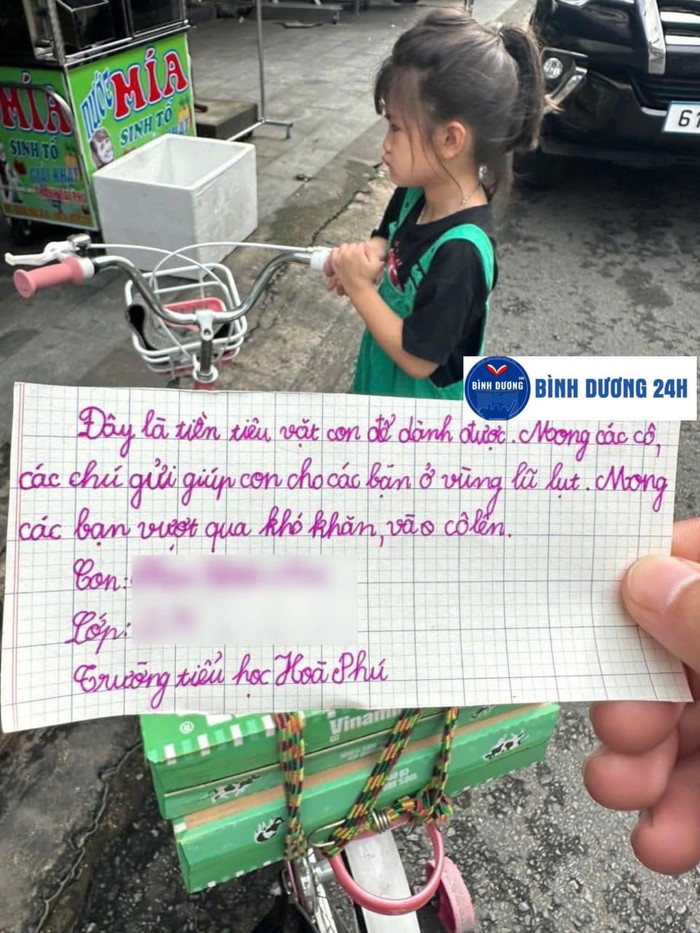 NƯỚC MÍA
SINH TỐ
MÍA
SINH TỐ
GIẢI KHÁT
61
BÌNH DƯƠNG
BÌNH DƯƠNG 24H
Đây là tiền tiêu vặt con để dành được. Mong các cô,
các chú gửi giúp con cho các bạn ở vùng lũ lụt. Mong
các bạn vượt qua khó khăn, vào cô lên.
Con:
Lớp:
Trường tiểu học Hoà Phú
Vinam